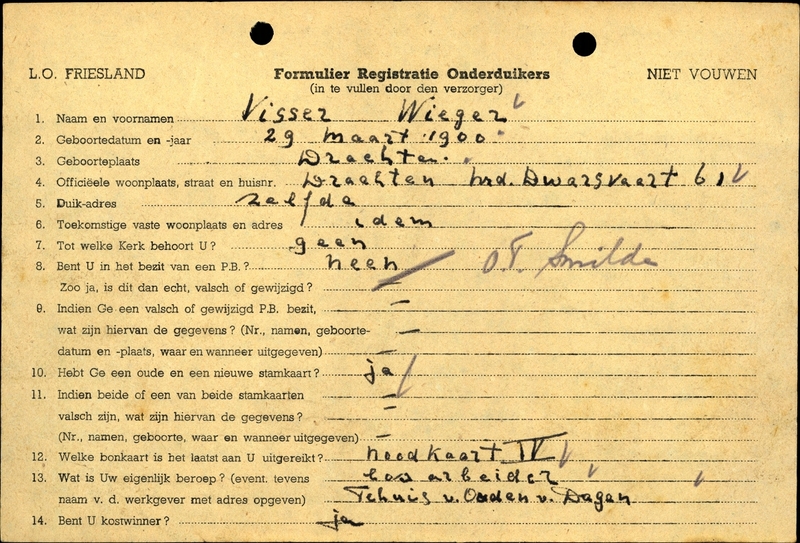 L.O. FRIESLAND Formulier Registratie Onderduikers NIET VOUWEN
(in te vullen door den verzorger)
1. Naam en voornamen Visser Wieger
2. Geboortedatum en -jaar 29 maart 1900
3. Geboorteplaats Drachten.
4. Officiëele woonplaats, straat en huisnr. Drachten nrd. Dwarsvaart 61
5. Duik-adres zelfde
6. Toekomstige vaste woonplaats en adres idem
7. Tot welke Kerk behoort U? geen
8. Bent U in het bezit van een P.B.? neen O.T. Smilde
Zoo ja, is dit dan echt, valsch of gewijzigd? —
9. Indien Ge een valsch of gewijzigd P.B. bezit, —
wat zijn hiervan de gegevens? (Nr., namen, geboorte- —
datum en -plaats, waar en wanneer uitgegeven) —
10. Hebt Ge een oude en een nieuwe stamkaart? ja
11. Indien beide of een van beide stamkaarten —
valsch zijn, wat zijn hiervan de gegevens? —
(Nr., namen, geboorte, waar en wanneer uitgegeven) —
12. Welke bonkaart is het laatst aan U uitgereikt? noodkaart IV
13. Wat is Uw eigenlijk beroep? (event. tevens los arbeider
naam v. d. werkgever met adres opgeven) Tehuis v. Ouden v. Dagen
14. Bent U kostwinner? ja